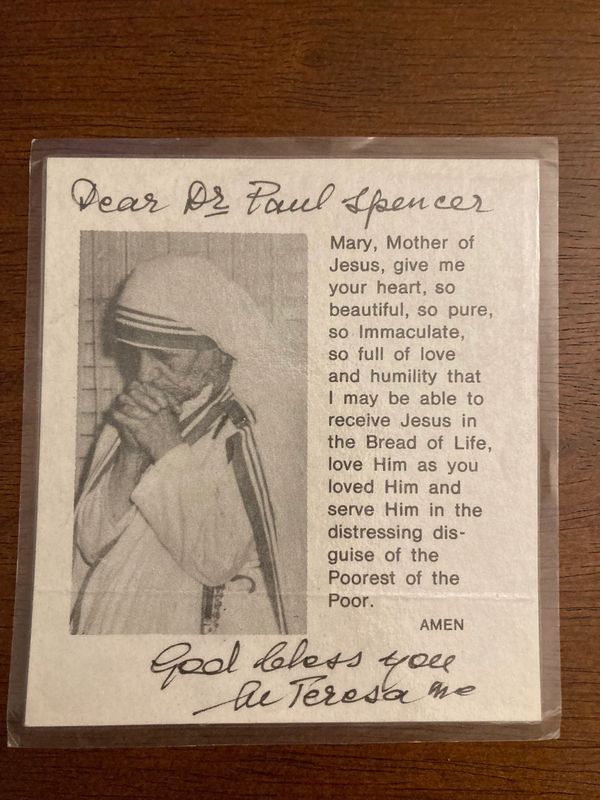 Dear Dr Paul Spencer
Mary, Mother of
Jesus, give me
your heart, so
beautiful, so pure,
so Immaculate,
so full of love
and humility that
I may be able to
receive Jesus in
the Bread of Life,
love Him as you
loved Him and
serve Him in the
distressing dis-
guise of the
Poorest of the
Poor.
AMEN
God bless you
M Teresa mc